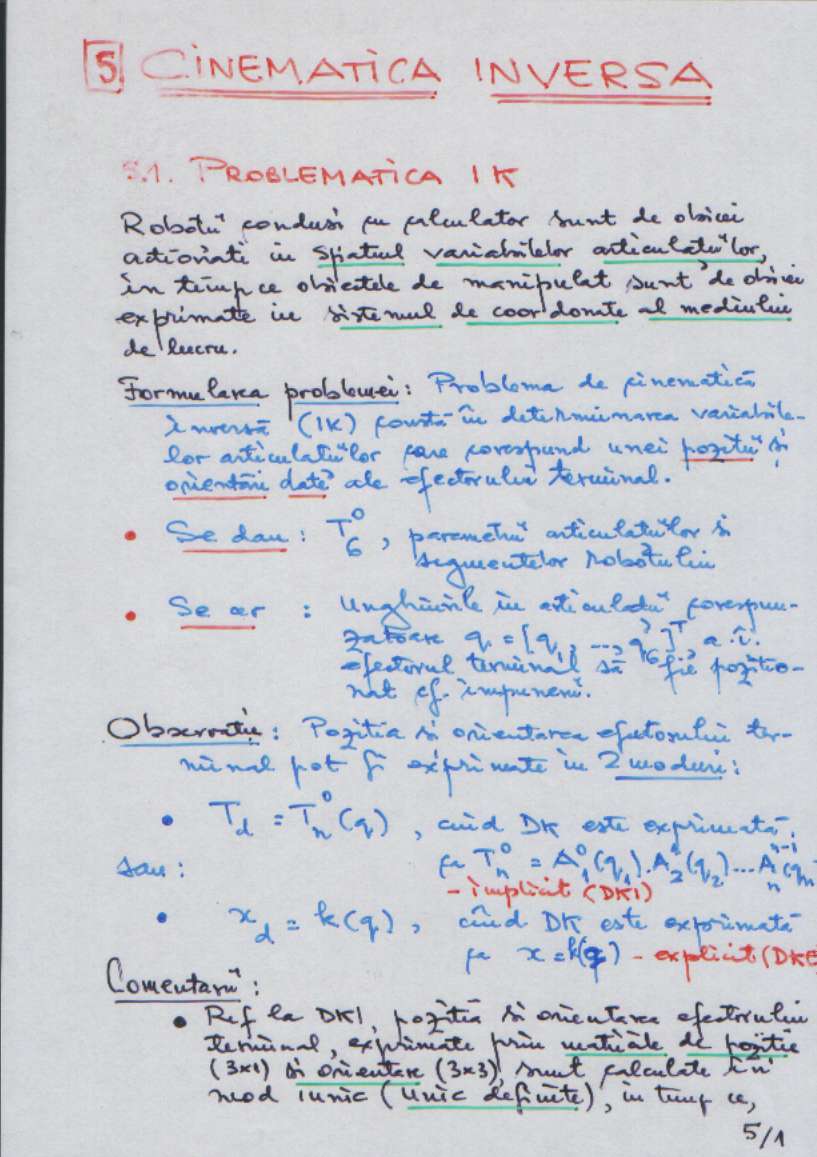 5 CINEMATICA INVERSA
5.1. PROBLEMATICA IK
Roboții conduși cu calculator sunt de obicei
acționați in spațiul variabilelor articulațiilor,
in timp ce obiectele de manipulat sunt de obicei
exprimate in sistemul de coordonate al mediului
de lucru.
Formularea problemei: Problema de cinematică
inversă (IK) constă în determinarea variabile-
lor articulațiilor care corespund unei poziții și
orientări date ale efectorului terminal.
• Se dau : T₆⁰, parametrii articulațiilor și
segmentelor robotului
• Se cer : Unghiurile în articulații corespun-
zătoare q = [q₁, ..., q₆]ᵀ a.î.
efectorul terminal să fie pozițio-
nat cf. impunerii.
Observație: Poziția și orientarea efectorului ter-
minal pot fi exprimate în 2 moduri:
• T_d = Tₙ⁰(q) , când DK este exprimată
sau: ca Tₙ⁰ = A₁⁰(q₁).A₂¹(q₂)...Aₙⁿ⁻¹(qₙ
- implicit (DKI)
• x_d = k(q) , când DK este exprimată
ca x = k(q) - explicit (DKE
Comentarii:
• Ref la DKI, poziția și orientarea efectorului
terminal, exprimate prin matricile de poziție
(3x1) și orientare (3x3), sunt calculate în
mod unic (unic definite), în timp ce,
5/1